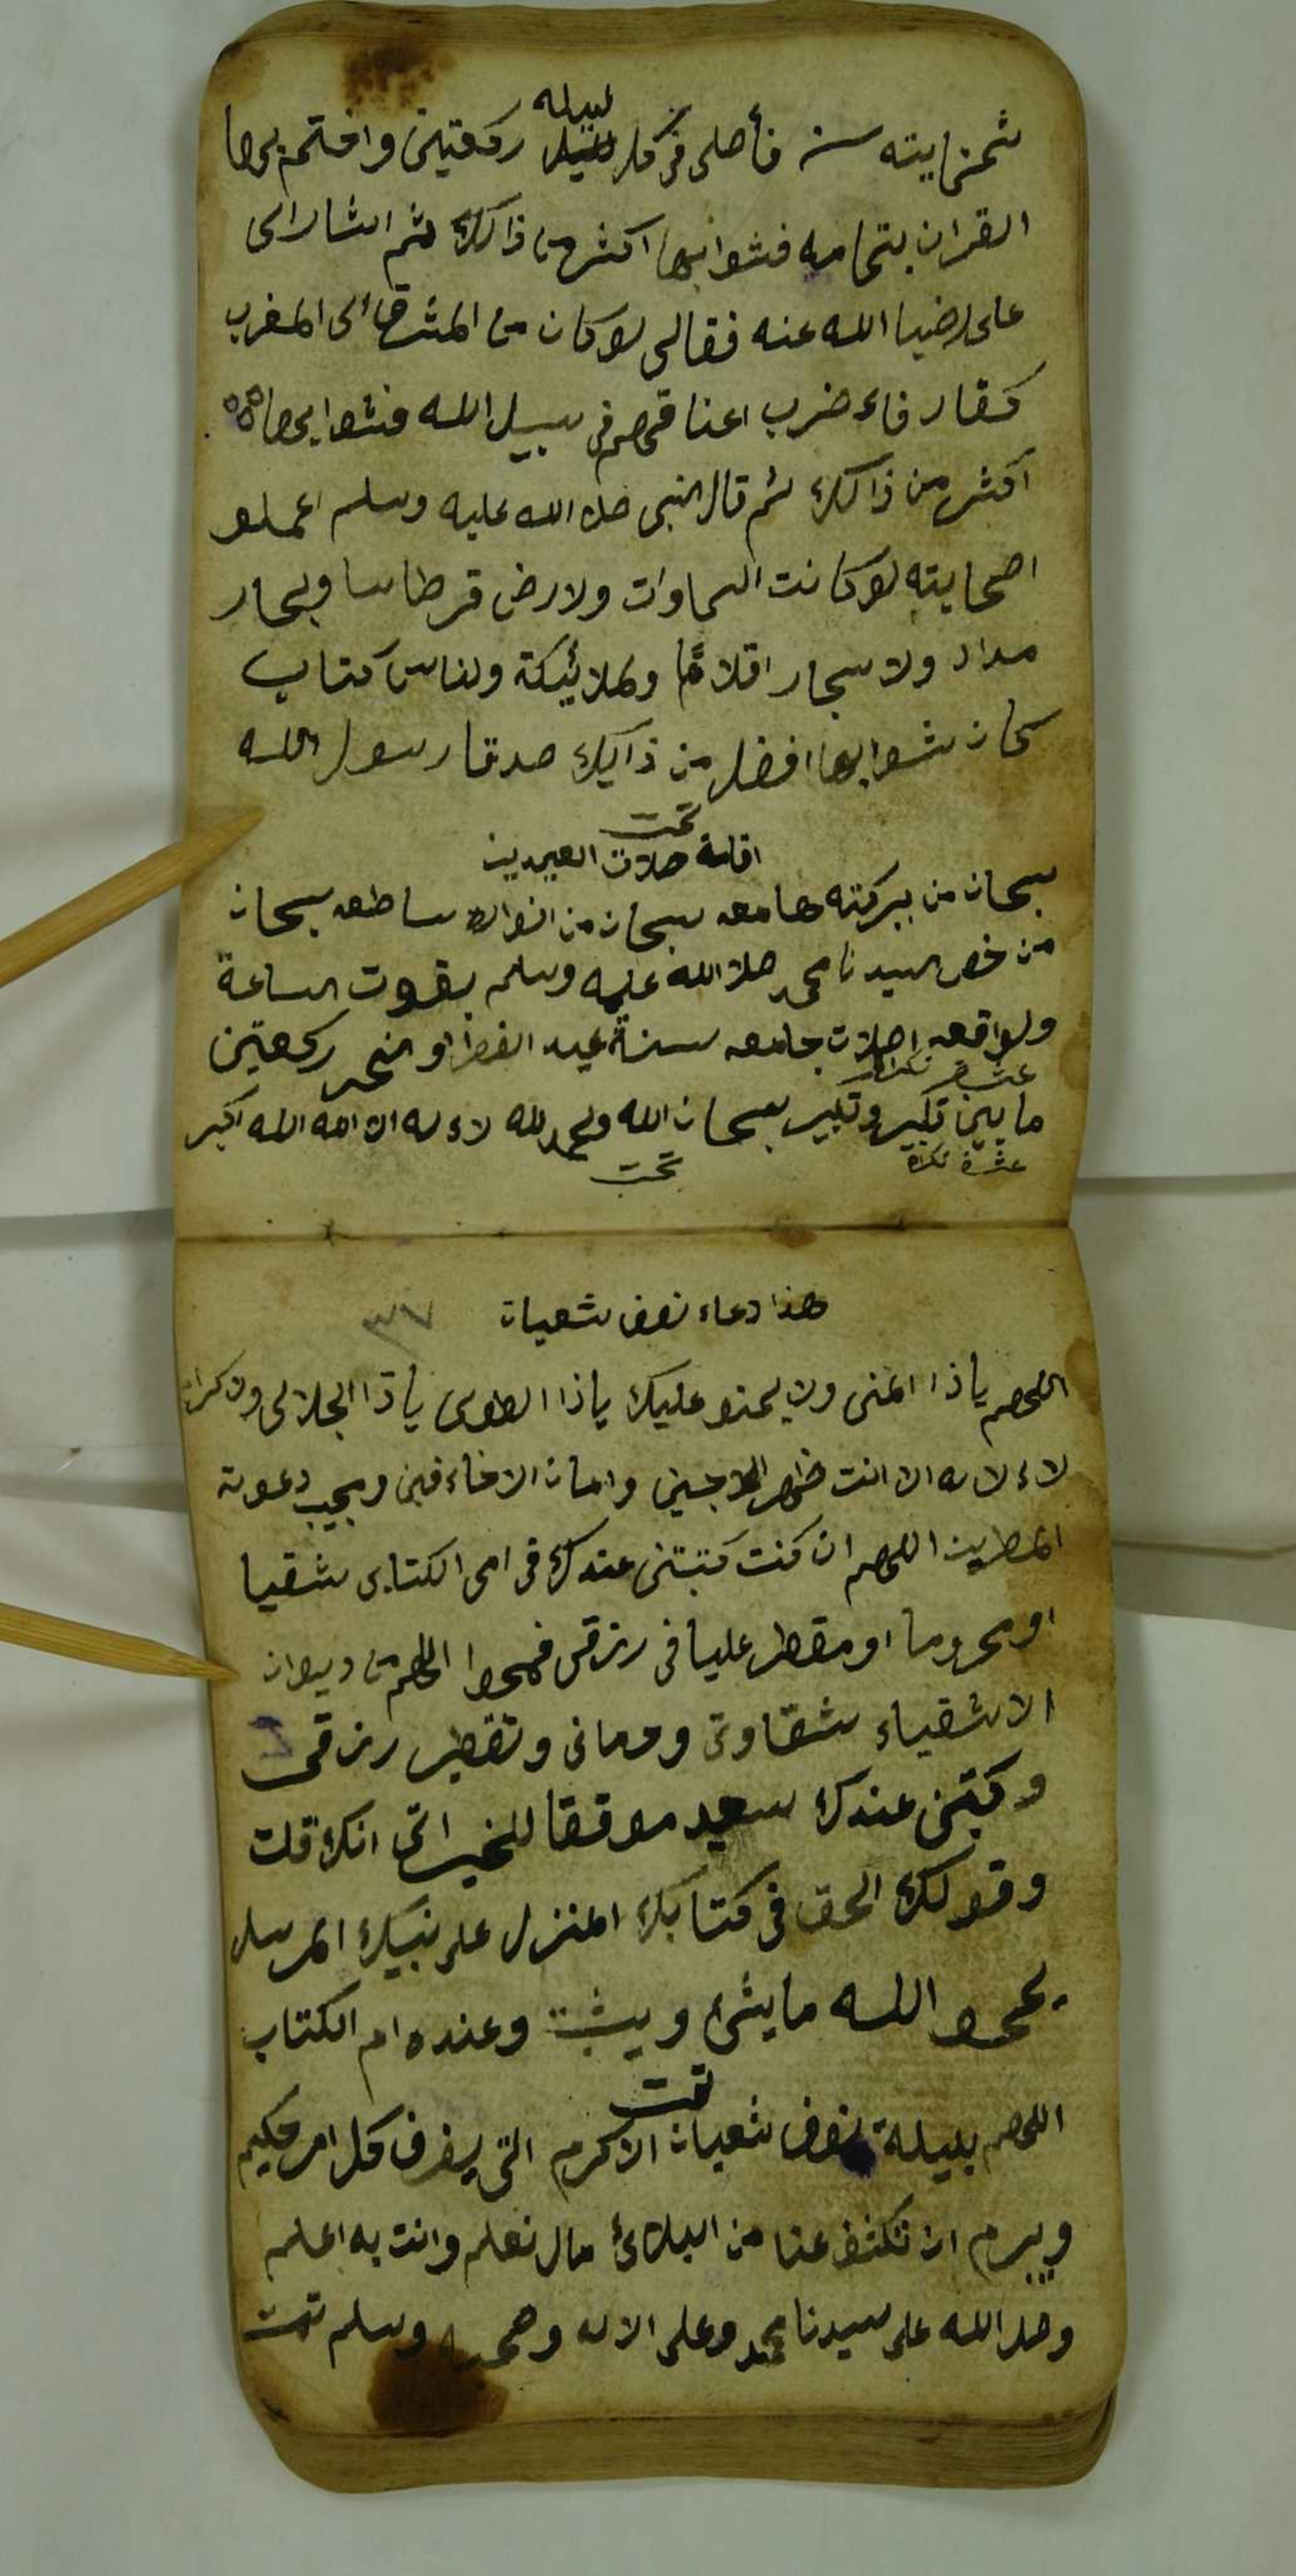 ثمنمايته سنه فأصلى فى كل ليله ركعتين واختم بها
القران بتمامه فثوابها اكثر من ذالك ثم اشار الى
على رضيا الله عنه فقال لو كان من المشرق الى المغرب
كفار فاء ضرب اعناقهم فى سبيل الله فثوابها
اكثر من ذالك ثم قال النبى صلا الله عليه وسلم اعملو
اصحابيته لو كانت السماوات ولارض قرطاسا وبحار
مداد ولا سجار اقلاما وملائيكة ولناس كتاب
كان ثوابها افضل من ذاليك صدقا رسول الله
تمت
اقامة صلات العيدين
سبحان من ببركته هامعه سبحان من انواره ساطعه سبحان
من خص سيدنا محمد صلا الله عليه وسلم بقوت الساعة
ولواقعه اصلات جامعه سنة عيد الفطر او نحر ركعتين
ما بين تكبير وتكبير سبحان الله ولحمد لله لاءله الا الله الله اكبر
تمت
هذا دعاء نصف شعبان ٣٧
اللهم ياذا المنى ولا يمنو عليك ياذا الطولى ياذا الجلالى ولاكرام
لاء لاه الا انت ظهر الاجين وامان الاخاءفين ومجيب دعوة
المطرين اللهم ان كنت كتبتنى عندك فى امى الكتابى شقيا
او محروما او مقطر عليا فى رزقى فمحوا اللهم من ديوان
الاشقياء شقاوتى وومانى وتقطير رزقى
وكتبنى عندك سعيد موفقا للخيراتى انك قلت
وقولك الحق فى كتابك المنزل على نبيك المرسل
يمحوا الله ما يشىء ويثبت وعنده ام الكتاب
تمت
اللهم بليلة نصف شعبان الاكرم التى يفرق كل امر حكيم
ويبرم ان تكشف عنا من البلائ مال نعلم وانت به اعلم
وصل الله على سيدنا محمد وعلى الاله وصحبه وسلم تمت